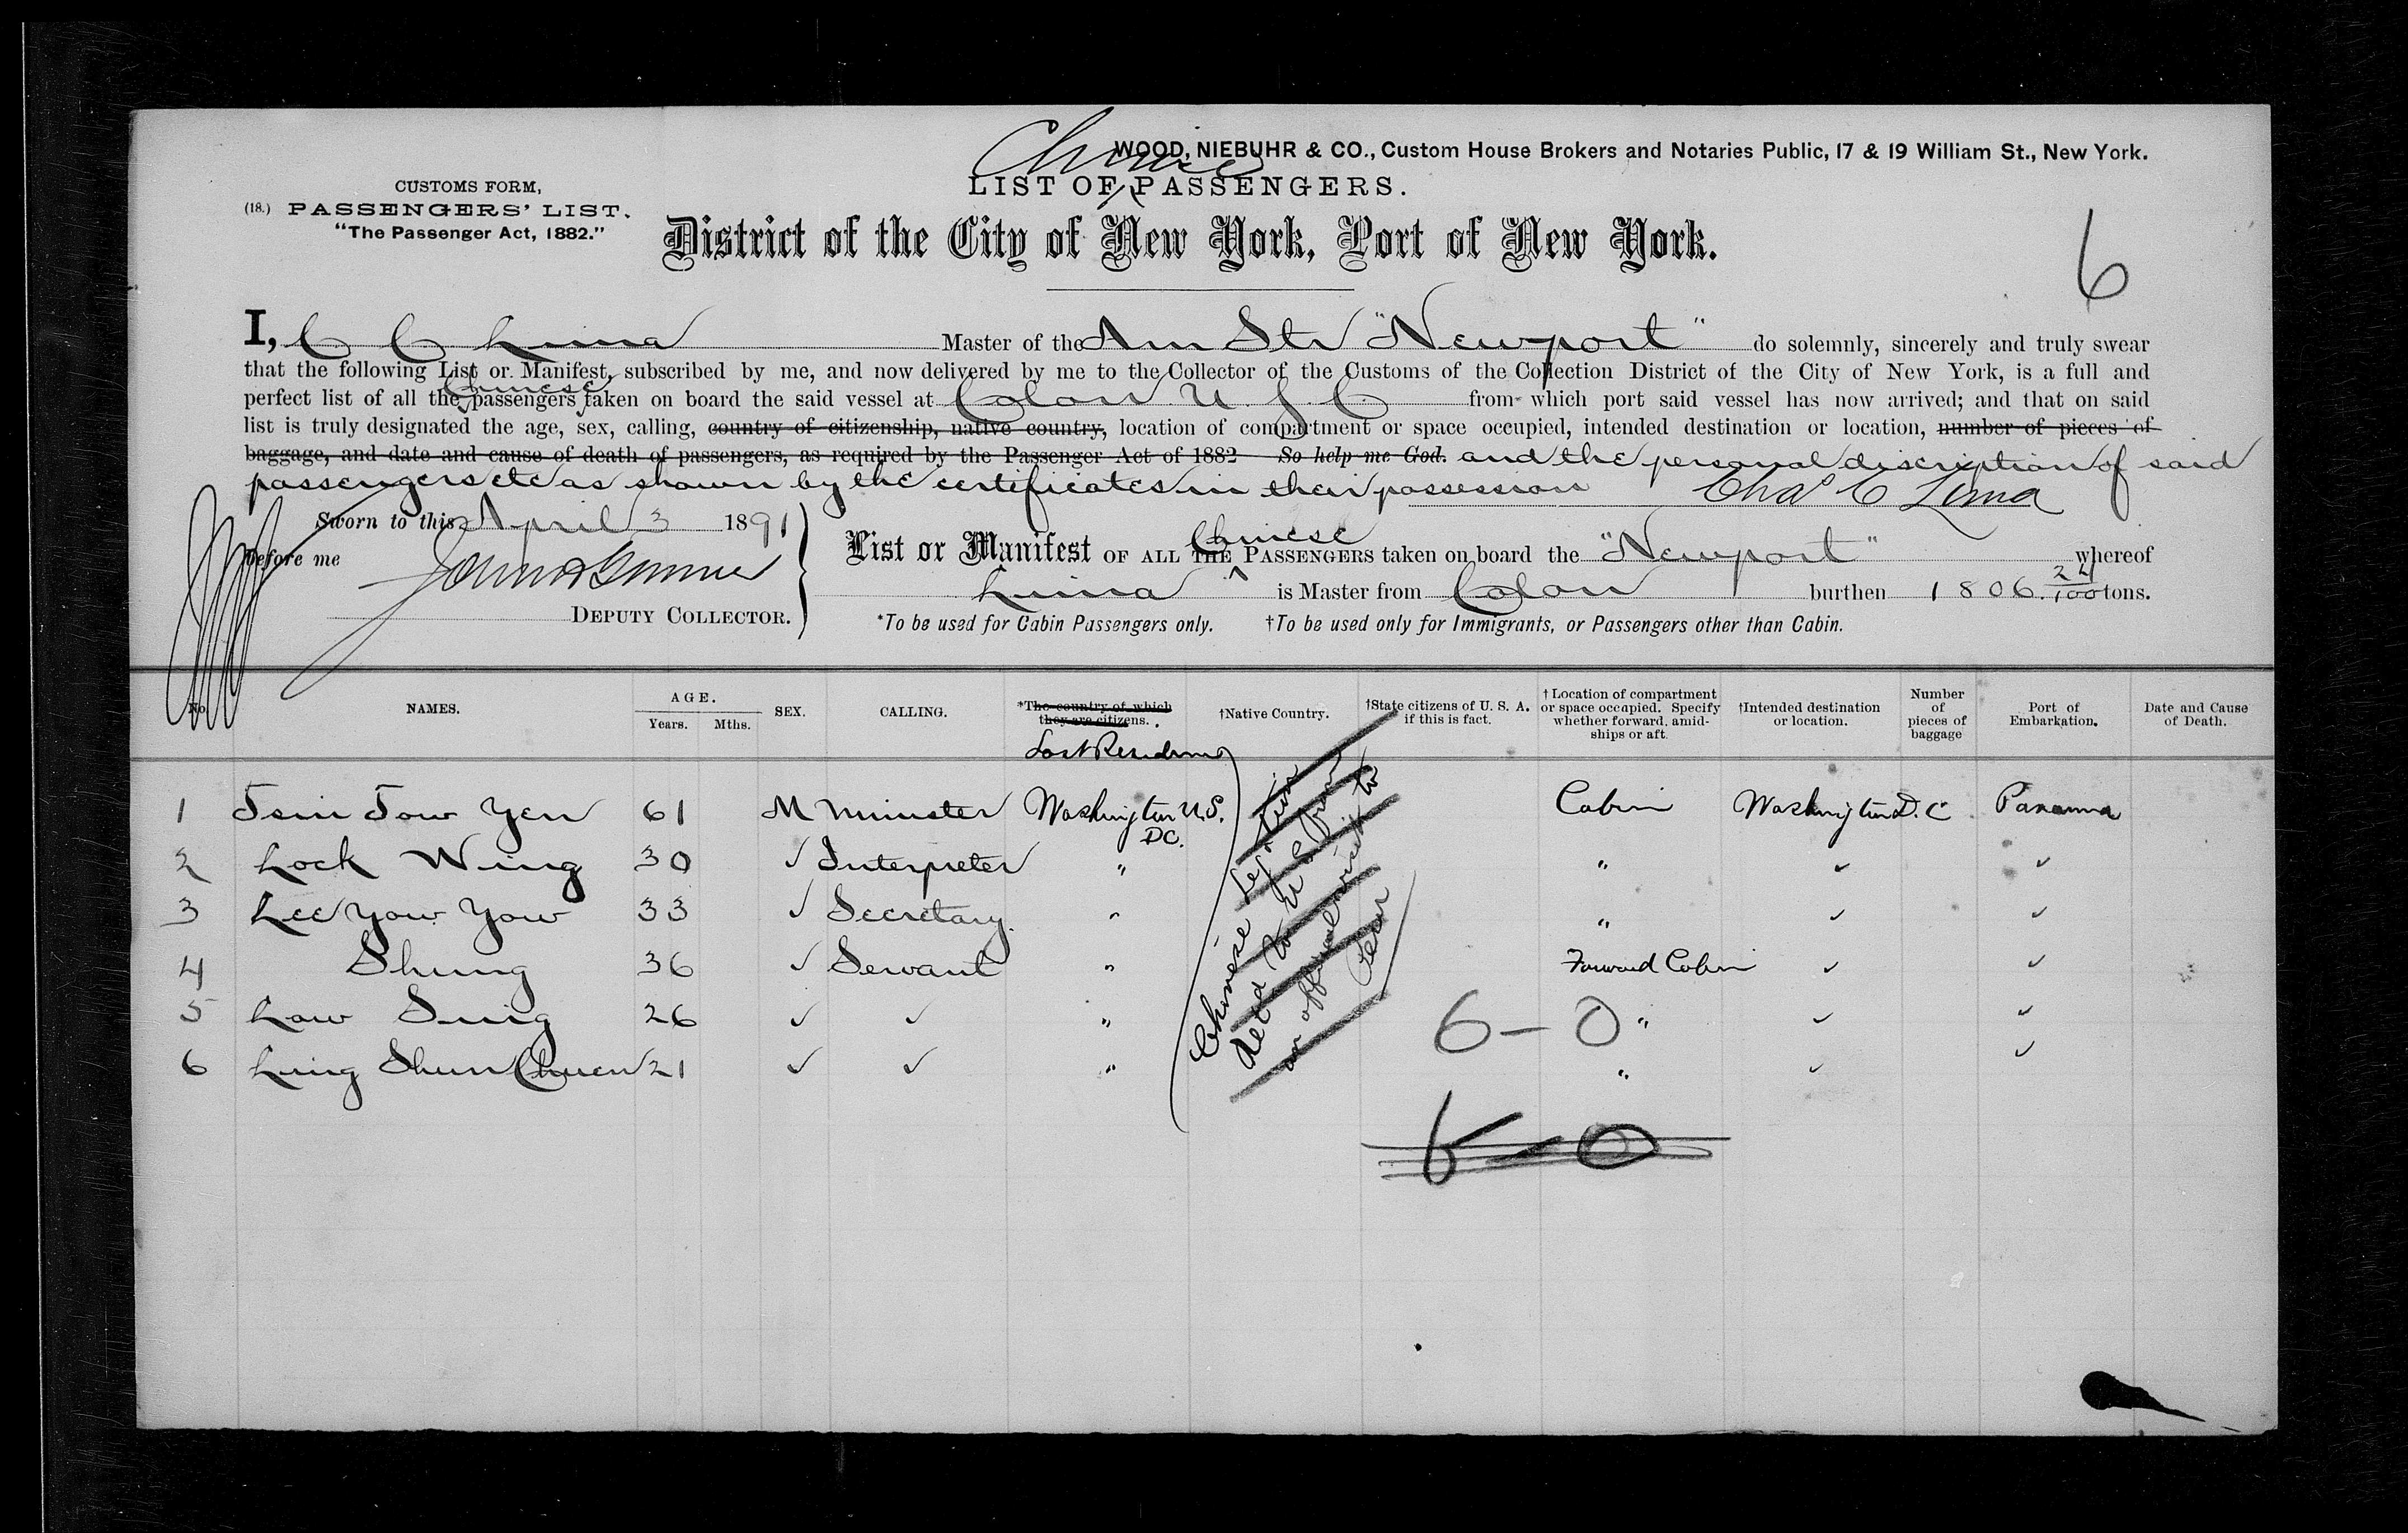 WOOD, NIEBUHR & CO., Custom House Brokers and Notaries Public, 17 & 19 William St., New York.
Chinese
LIST OF PASSENGERS.
CUSTOMS FORM,
(18.) PASSENGERS' LIST.
"The Passenger Act, 1882."
District of the City of New York, Port of New York.
6
I, C C Lima Master of the Am Str "Newport" do solemnly, sincerely and truly swear
that the following List or Manifest, subscribed by me, and now delivered by me to the Collector of the Customs of the Collection District of the City of New York, is a full and
Chinese
perfect list of all the passengers taken on board the said vessel at Colon U. S. C from which port said vessel has now arrived; and that on said
list is truly designated the age, sex, calling, country of citizenship, native country, location of compartment or space occupied, intended destination or location, number of pieces of
baggage, and date and cause of death of passengers, as required by the Passenger Act of 1882 So help me God. and the personal discription of said
passengers etc as shown by the certificates in their possession Chas C Lima
Sworn to this April 3 1891
before me
DEPUTY COLLECTOR.
Chinese
List or Manifest OF ALL THE PASSENGERS taken on board the "Newport" whereof
Lima is Master from Colon burthen 1806. 24/100 tons.
*To be used for Cabin Passengers only. †To be used only for Immigrants, or Passengers other than Cabin.
No. NAMES. AGE. Years. Mths. SEX. CALLING. *The country of which they are citizens. Last Residence †Native Country. †State citizens of U. S. A. if this is fact. †Location of compartment or space occupied. Specify whether forward, amid-ships or aft. †Intended destination or location. Number of pieces of baggage Port of Embarkation. Date and Cause of Death.
1 Tsui Tow Yen 61 M Minister Washington U.S. DC. Cabin Washington D.C. Panama
2 Lock Wing 30 ✓ Interpreter " " ✓ ✓
3 Lee Yow Yow 33 ✓ Secretary. " " ✓ ✓
4 Shung 36 ✓ Servant " Forward Cabin ✓ ✓
5 Law Sing 26 ✓ ✓ " " ✓ ✓
6 Ling Shun Chuen 21 ✓ ✓ " " ✓ ✓
Chinese Legation
to U S from
an official visit to
Peru
6 - 0
6 - 0